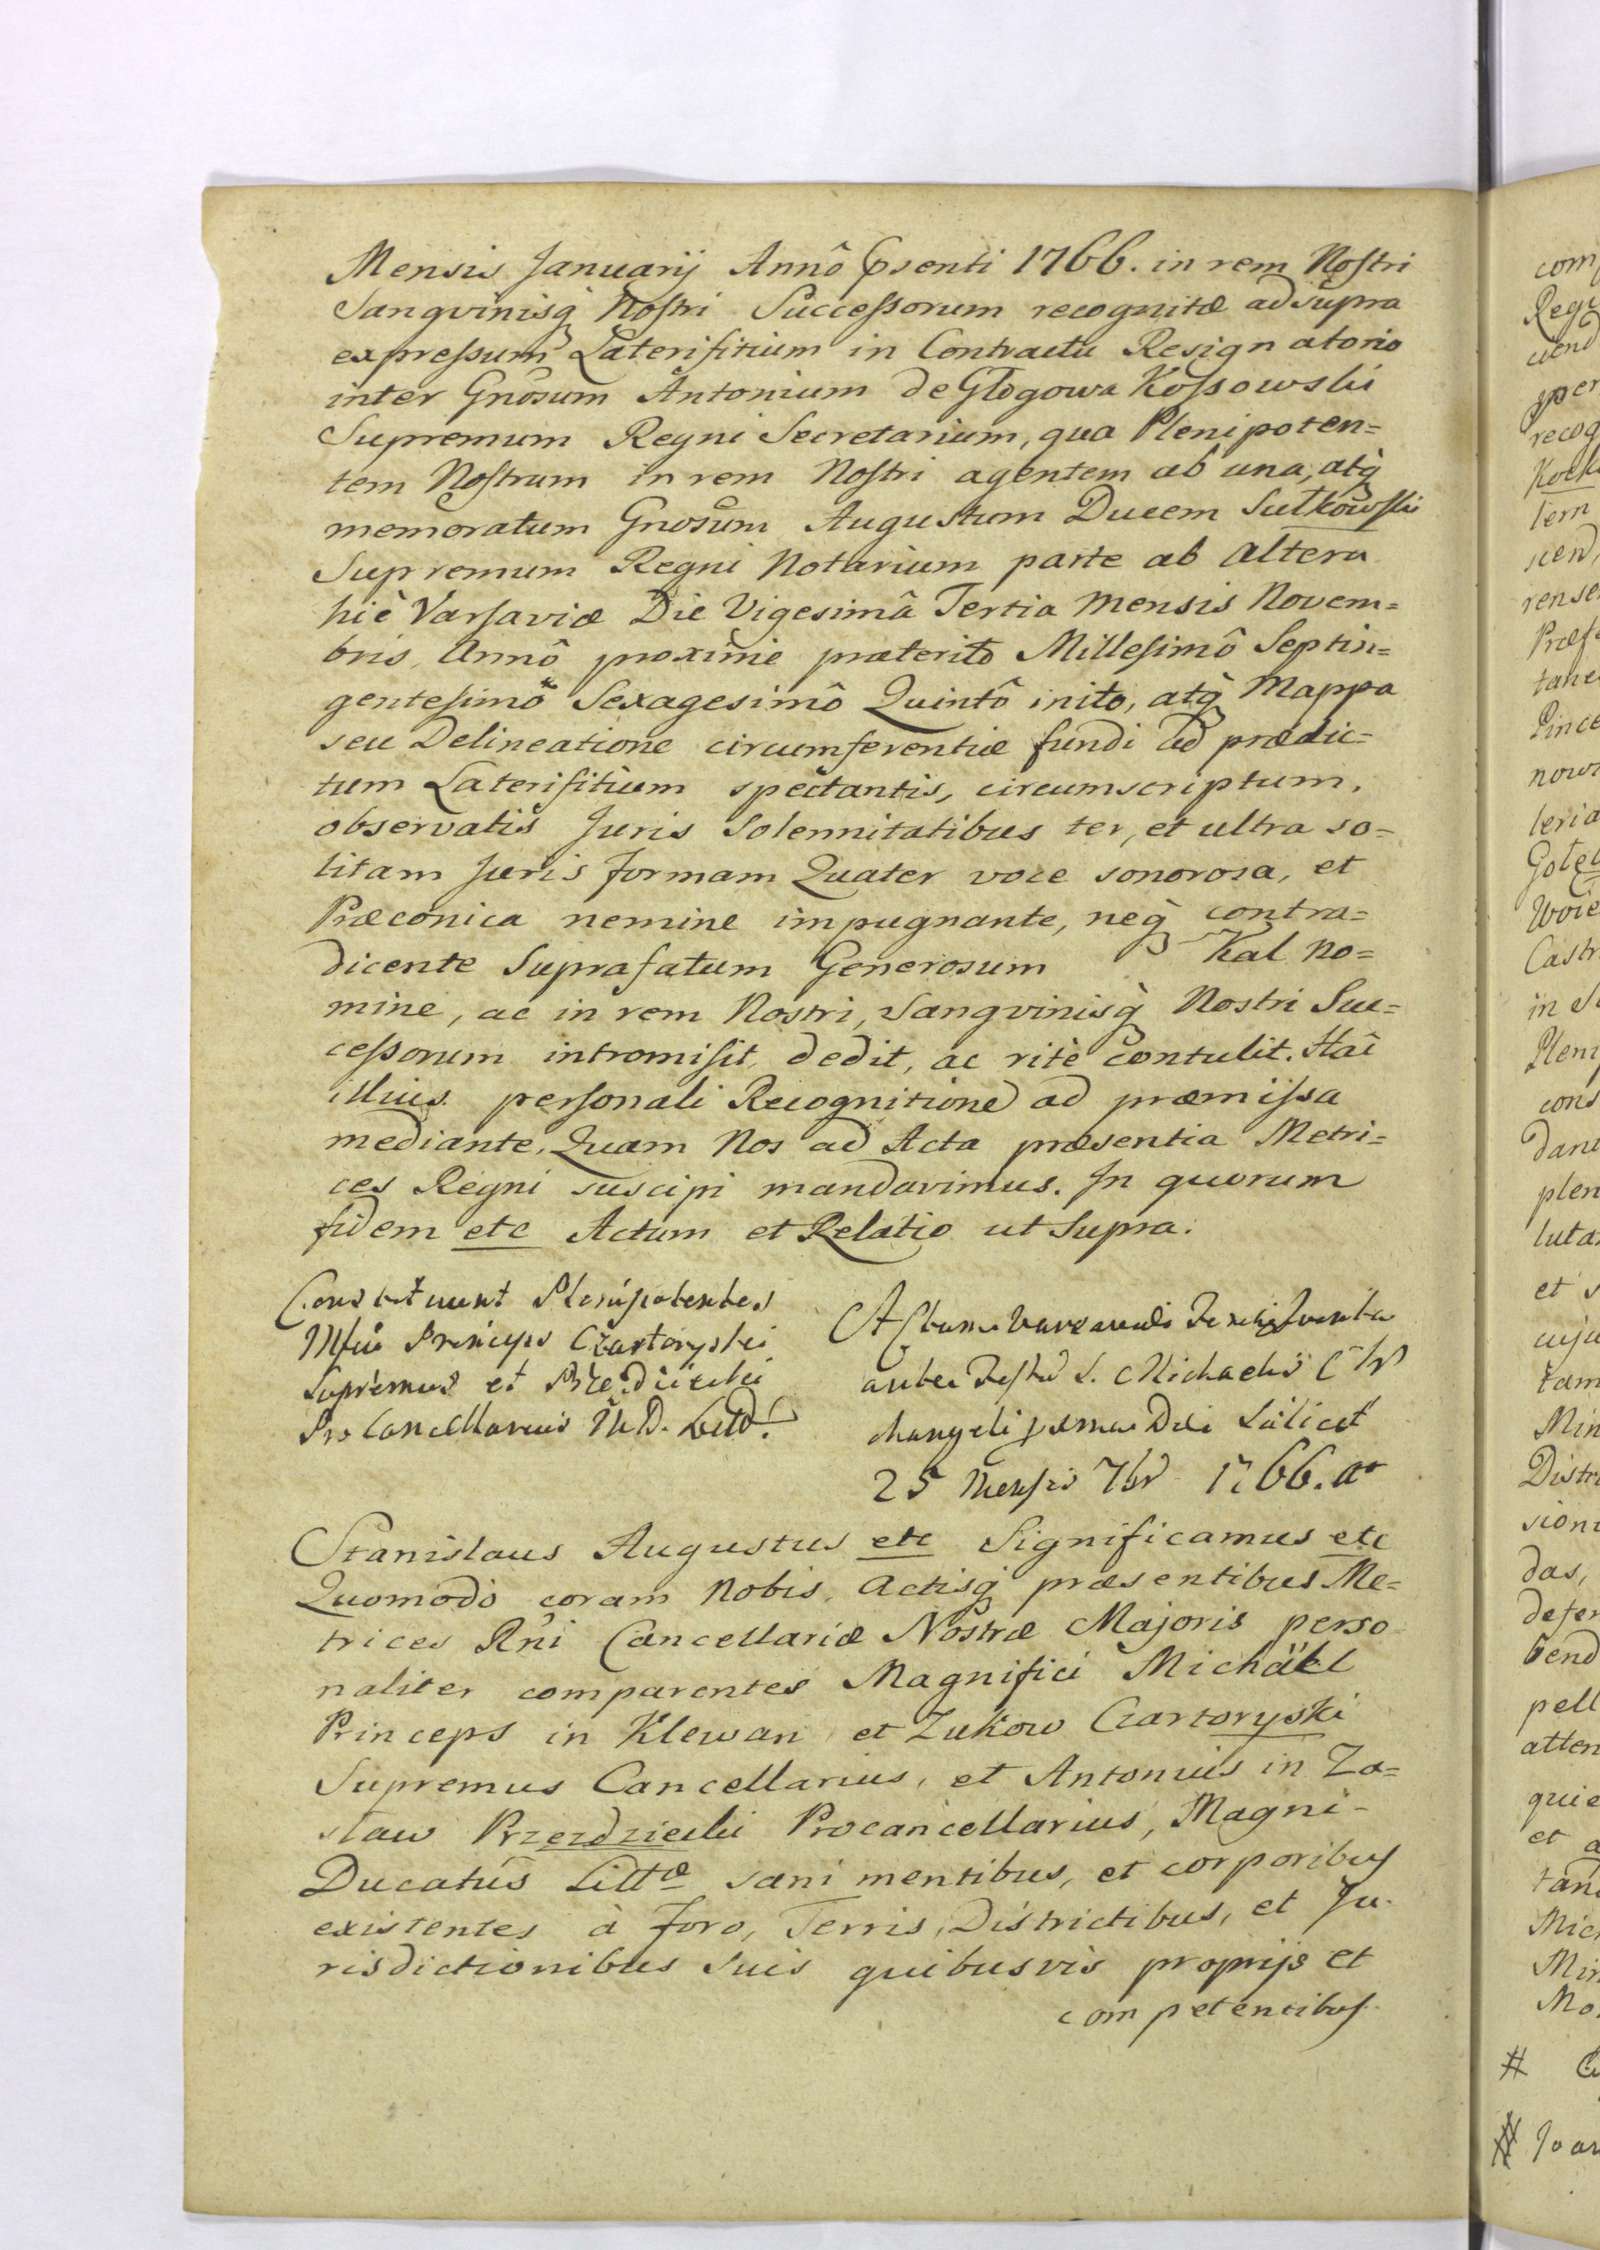 Mensis Januarij Annô psenti 1766. in rem Nostri
Sangvinisq̀ Nostri Successorum recognitæ ad supra
expressum Laterifitium in Contractu Resignatorio
inter Gnosum Antonium de Głogowa Kossowski
Supremum Regni Secretarium, qua Plenipoten=
tem Nostrum in rem Nostri agentem ab una, atq̀
memoratum Gnosum Augustum Ducem Sułkowski
Supremum Regni Notarium parte ab altera
hic Varsaviæ Die Vigesimâ Tertia Mensis Novem=
bris, Annô proxime præterito Millesimô Septin=
gentesimô Sexagesimô Quintô inito, atq̀ Mappa
seu Delineatione circumferentiæ fundi ad prædic=
tum Laterifitium spectantis, circumscriptum,
observatis Juris Solennitatibus ter, et ultra so=
litam Juris formam Quater voce sonorosa, et
Præconica nemine impugnante, neq̀ contra=
dicente Suprafatum Generosum Kal no=
mine, ac in rem Nostri, Sangvinisq̀ Nostri Suc=
cessorum intromisit, dedit, ac ritè contulit. Hac
illius personali Recognitione ad præmissa
mediante. Quam Nos ad Acta præsentia Metri=
ces Regni suscipi mandavimus. In quorum
fidem etc Actum et Relatio ut Supra.
Constituunt Plenipotentes
Princeps Czartoryski
Supremus et
Pro Cancellarius M. D. Litt.
Actum Varsaviæ
ante Festum S. Michaelis
changeli Die Scilicet
25 Mensis 7br 1766. ao
Stanislaus Augustus etc Significamus etc
Quomodo coram Nobis, Actisq̀ præsentibus Me=
trices Rñi Cancellariæ Nostræ Majoris perso
naliter comparentes Magnifici Michäel
Princeps in Klewan et Zukow Czartoryski
Supremus Cancellarius, et Antonius in Za=
sław Przezdziecki Procancellarius, Magni-
Ducatus Littæ sani mentibus, et corporibus
existentes à Foro, Terris, Districtibus, et Ju-
risdictionibus suis quibusvis proprijs et
competentibus